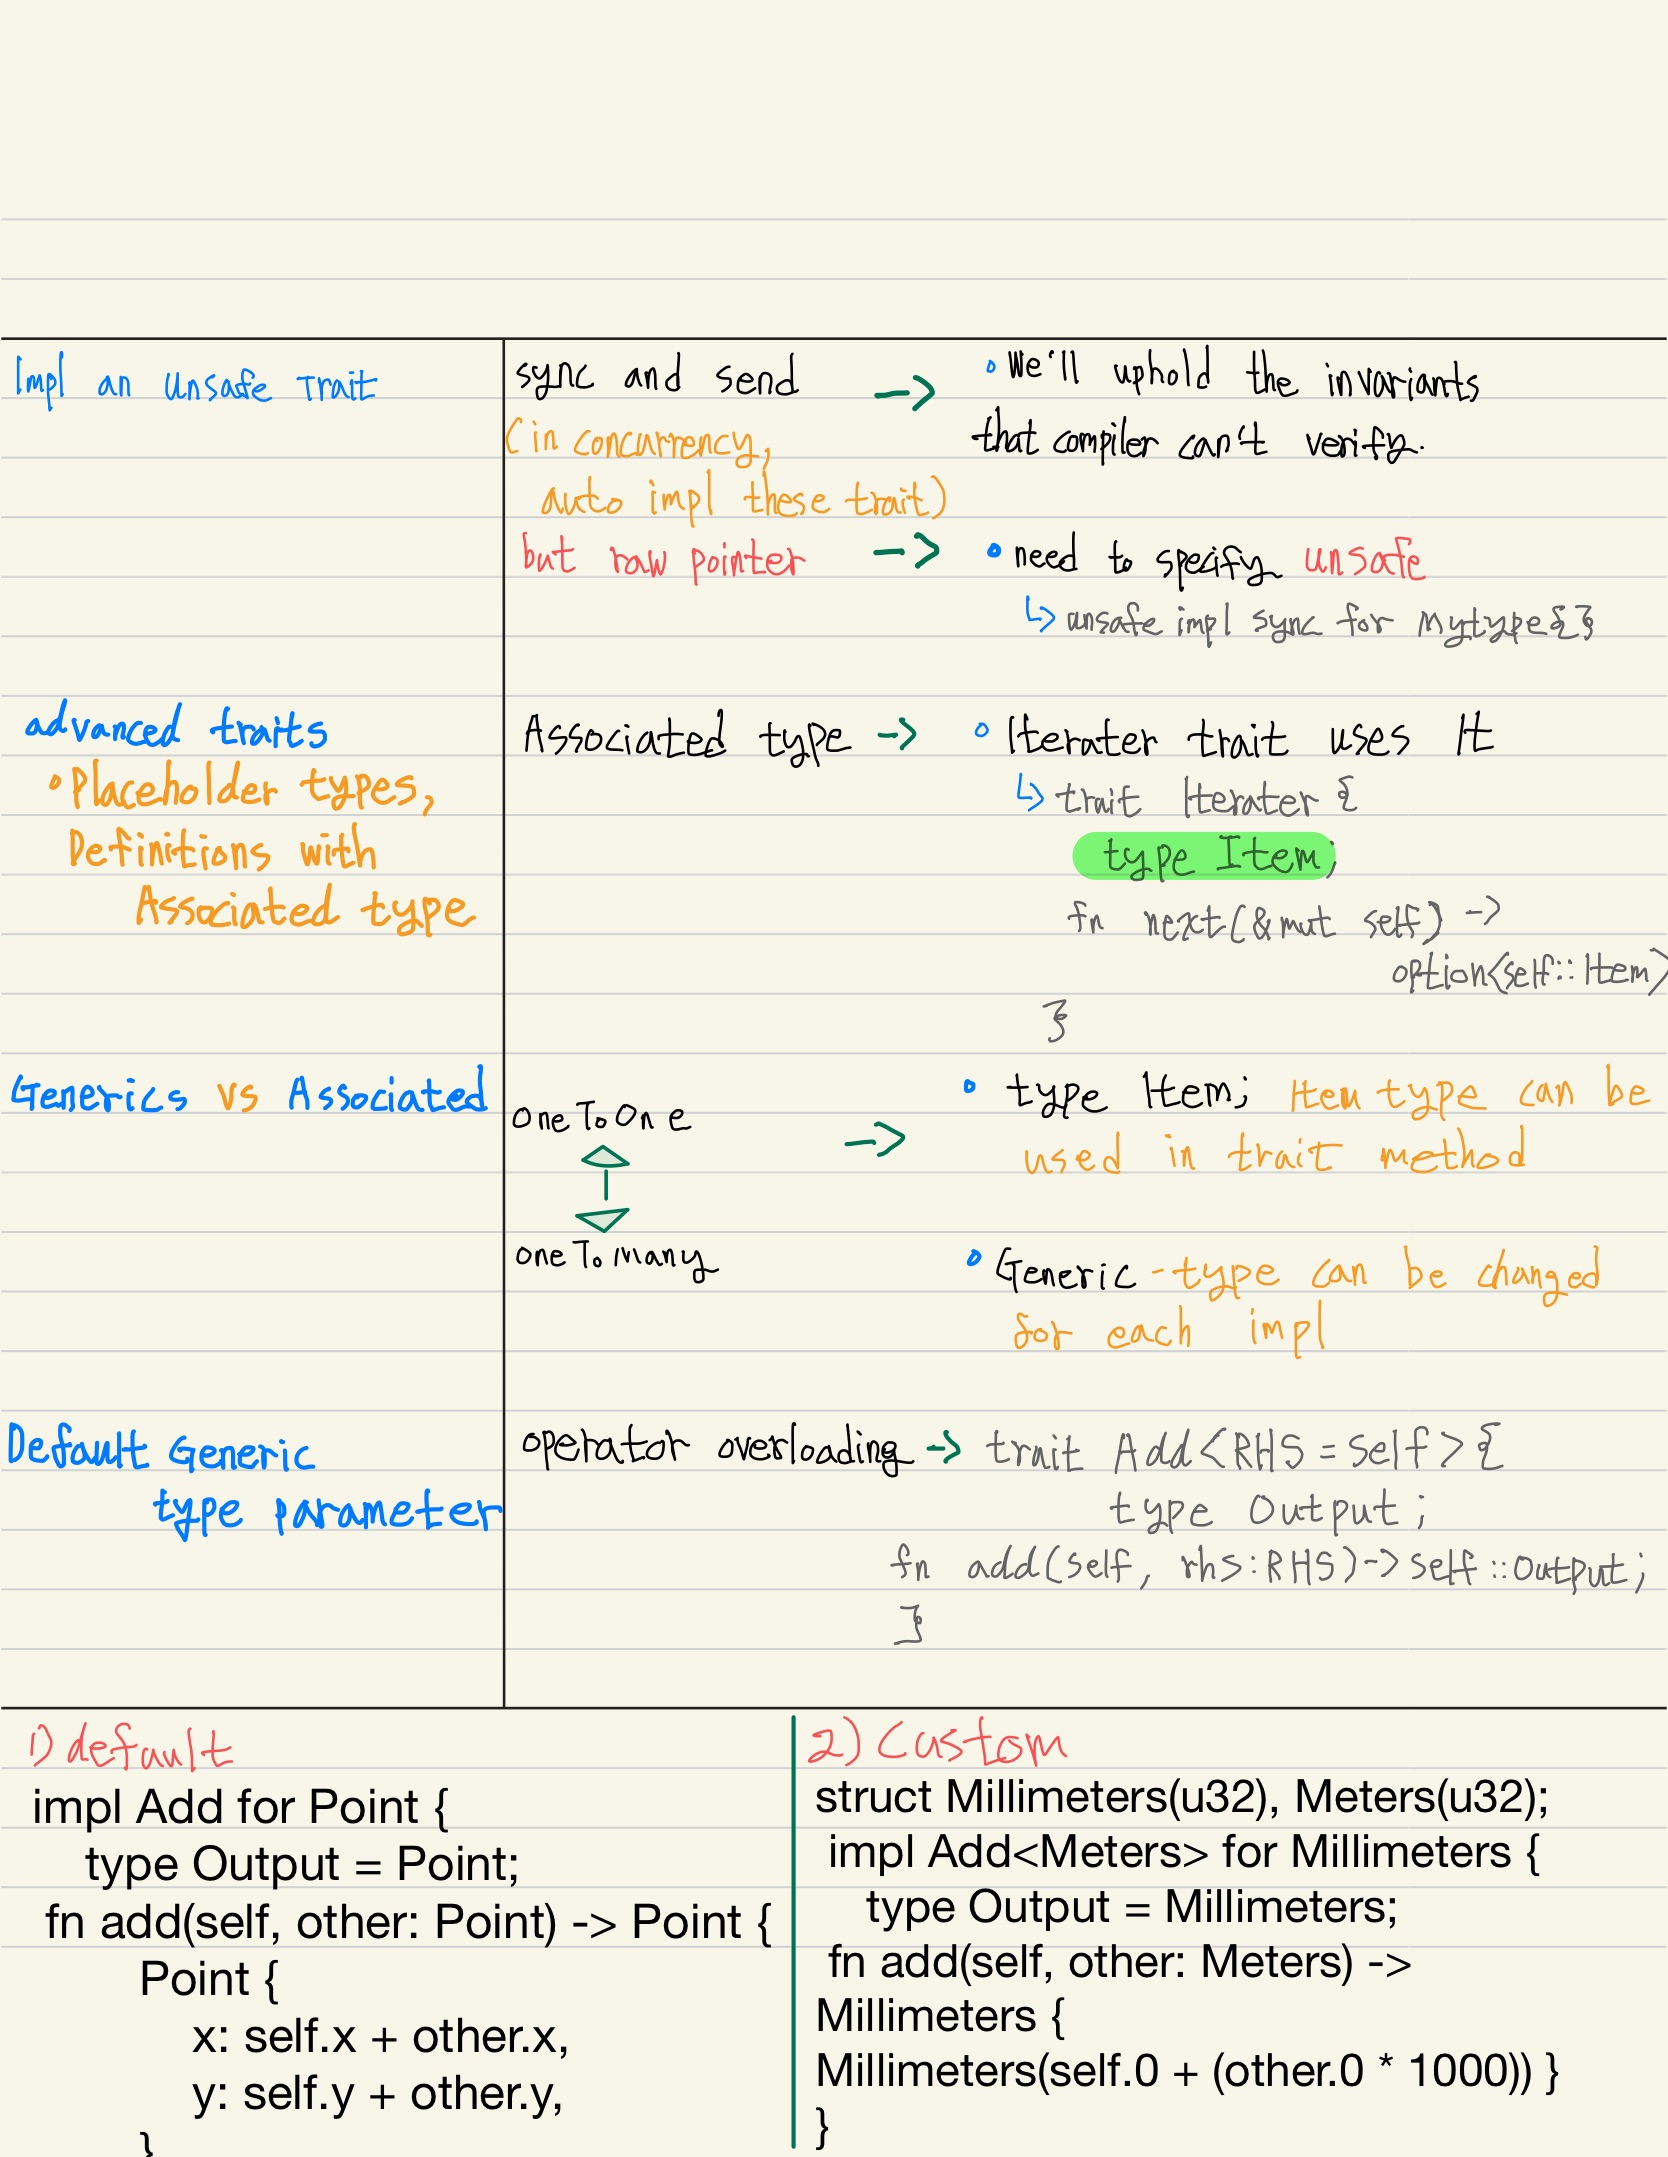 Impl an unsafe trait
sync and send -> • We'll uphold the invariants
(in concurrency, that compiler can't verify.
auto impl these trait)
but raw pointer -> • need to specify unsafe
↳ unsafe impl sync for Mytype{}
advanced traits
Associated type -> • Iterater trait uses It
• Placeholder types,
Definitions with
Associated type
↳ trait Iterater {
type Item;
fn next(&mut self) ->
option<self::Item>
}
Generics vs Associated
One To One -> • type Item; Item type can be
used in trait method
one To many
• Generic - type can be changed
for each impl
Default Generic
type parameter
operator overloading -> trait Add<RHS=self>{
type Output;
fn add(self, rhs:RHS)->self::output;
}
1) default
impl Add for Point {
type Output = Point;
fn add(self, other: Point) -> Point {
Point {
x: self.x + other.x,
y: self.y + other.y,
}
2) Custom
struct Millimeters(u32), Meters(u32);
impl Add<Meters> for Millimeters {
type Output = Millimeters;
fn add(self, other: Meters) ->
Millimeters {
Millimeters(self.0 + (other.0 * 1000)) }
}